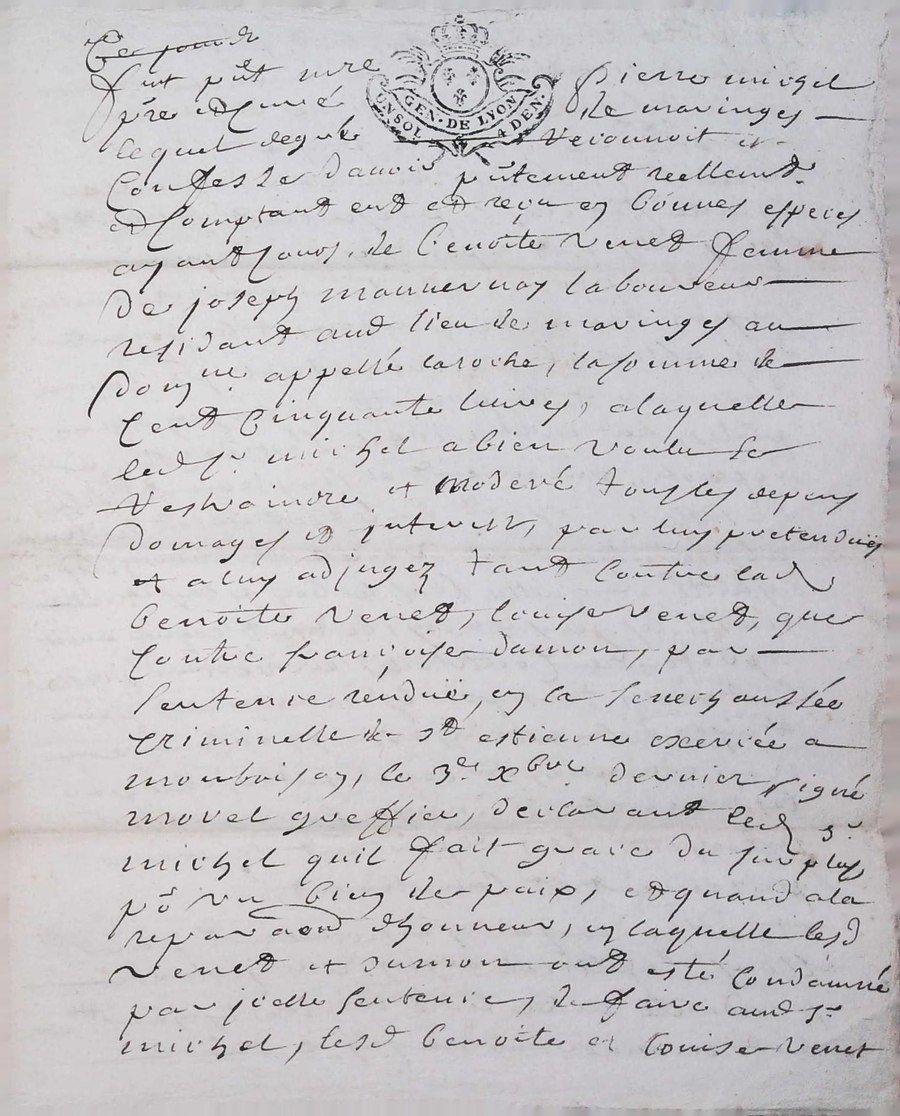 Ce jourdh
GEN. DE LYON
UN SOL 4 DEN.
fut pnt mre Pierre michel
pre et Curé de maringes
lequel de gré reconnoit et
Confesse d'avoir pntement reellemt
et Comptant eut et reçu en bonnes especes
ayant Cours, de benoite Venet femme
de joseph mannevnay laboureur
residant aud lieu de maringes au
domne appellé laroche, la somme de
Cent Cinquante livres, a laquelle
led sr michel a bien voulu se
restraindre et moderé tous les depens
domages et interests, par luy pretenduës
et a luy adjugez tant contre lad
benoite Venet, louise venet, que
Contre françoise damon, par
sentence renduë en la senechaussée
criminelle de st estienne exercée a
monboisson, le 3e Xbre dernier signé
morel greffier, declarant led sr
michel quil fait grace du surplus
pr un bien de paix, et quand a la
reparaon dhonneur, en laquelle lesd
Venet et dumon ont esté Condamné
par icelle sentence, de faire aud sr
michel, lesd benoite et Louise Venet